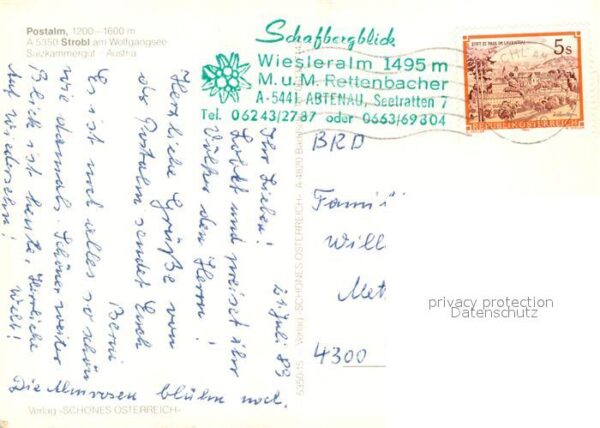 Postalm, 1200–1600 m
A 5350 Strobl am Wolfgangsee
Salzkammergut – Austria
Schafbergblick
Wiesleralm 1495 m
M. u. M. Rettenbacher
A-5441 ABTENAU, Seetratten 7
Tel. 06243/2787 oder 0663/69304
5 S
STIFT ST. PAUL IM LAVANTTAL
REPUBLIK ÖSTERREICH
21. Juli 89
Ihr Lieben!
Lobt und preiset ihr
Völker den Herrn!
Herrliche Grüße von
der Postalm sendet Euch
Berni
Es ist noch alles so schön
wie damals. Schöner weiter
Blick ist heute. Herrliche
Welt!
Auf Wiedersehn!
Die Almrosen blühn noch.
BRD
Famili
Will
Met
4300
privacy protection
Datenschutz
5350/15 Verlag »SCHÖNES ÖSTERREICH« A 4820 Bad
Verlag »SCHÖNES ÖSTERREICH«